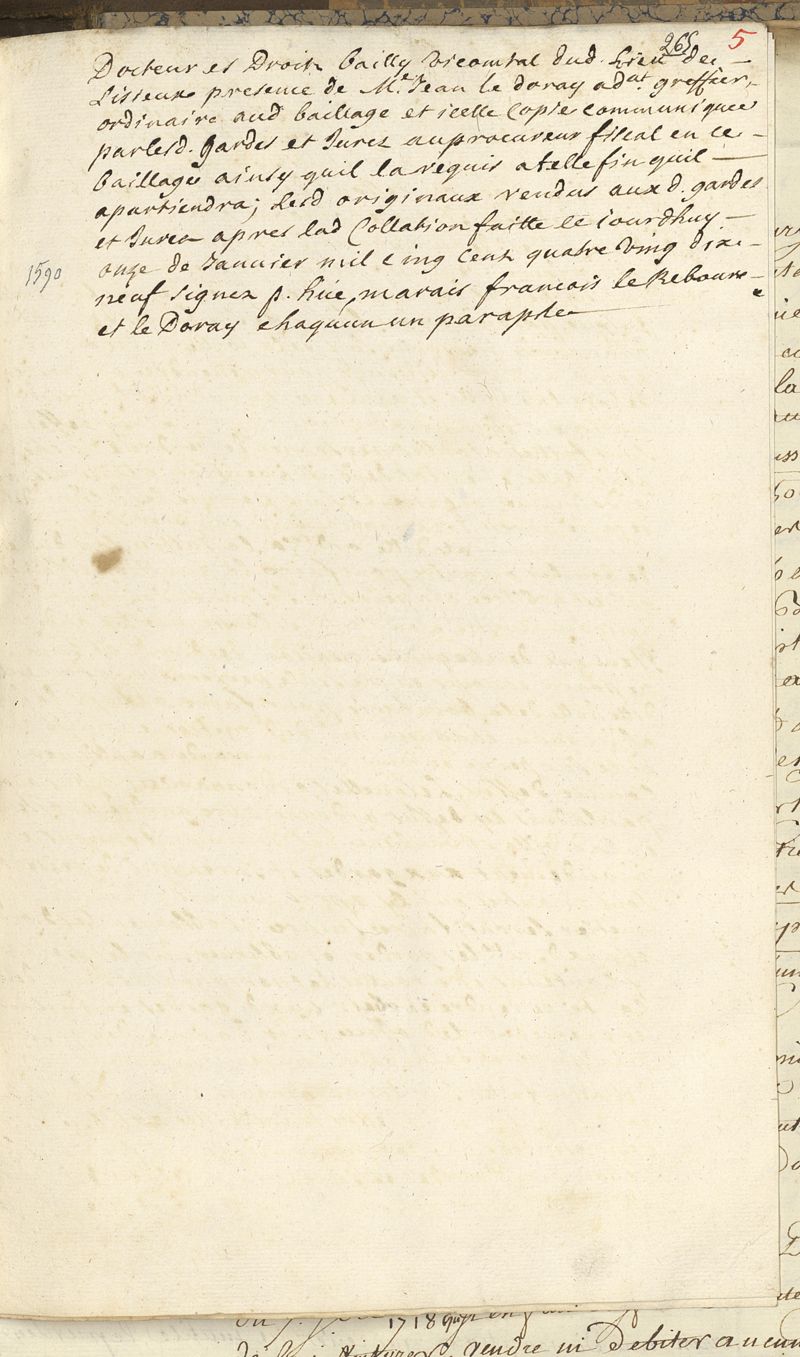 265 5
Docteur es Droits bailly vicomtal dud. Lieu de
Lisieux presence de Me Jean le doray adat. greffier
ordinaire aud bailliage et icelle Copie communiquee
par lesd. Gardes et Jurez au procureur fiscal en ce
bailliage ainsy quil la requis a telle fin quil
apartiendra; Lesd originaux rendus aux d. gardes
et Jurez apres lad Collation faitte le iourdhuy
onze de Janvier mil cinq cent quatre ving dixe
1590
neuf signez p. hüe, marais francois le Rebours
et le Doray chaqunun un paraphe
1718
vendre ni Debiter aucun